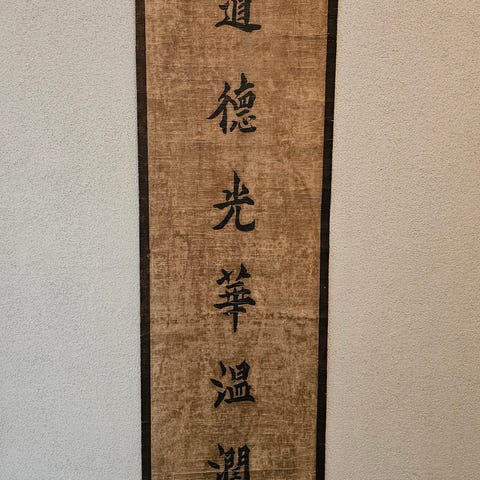 道德光華温潤